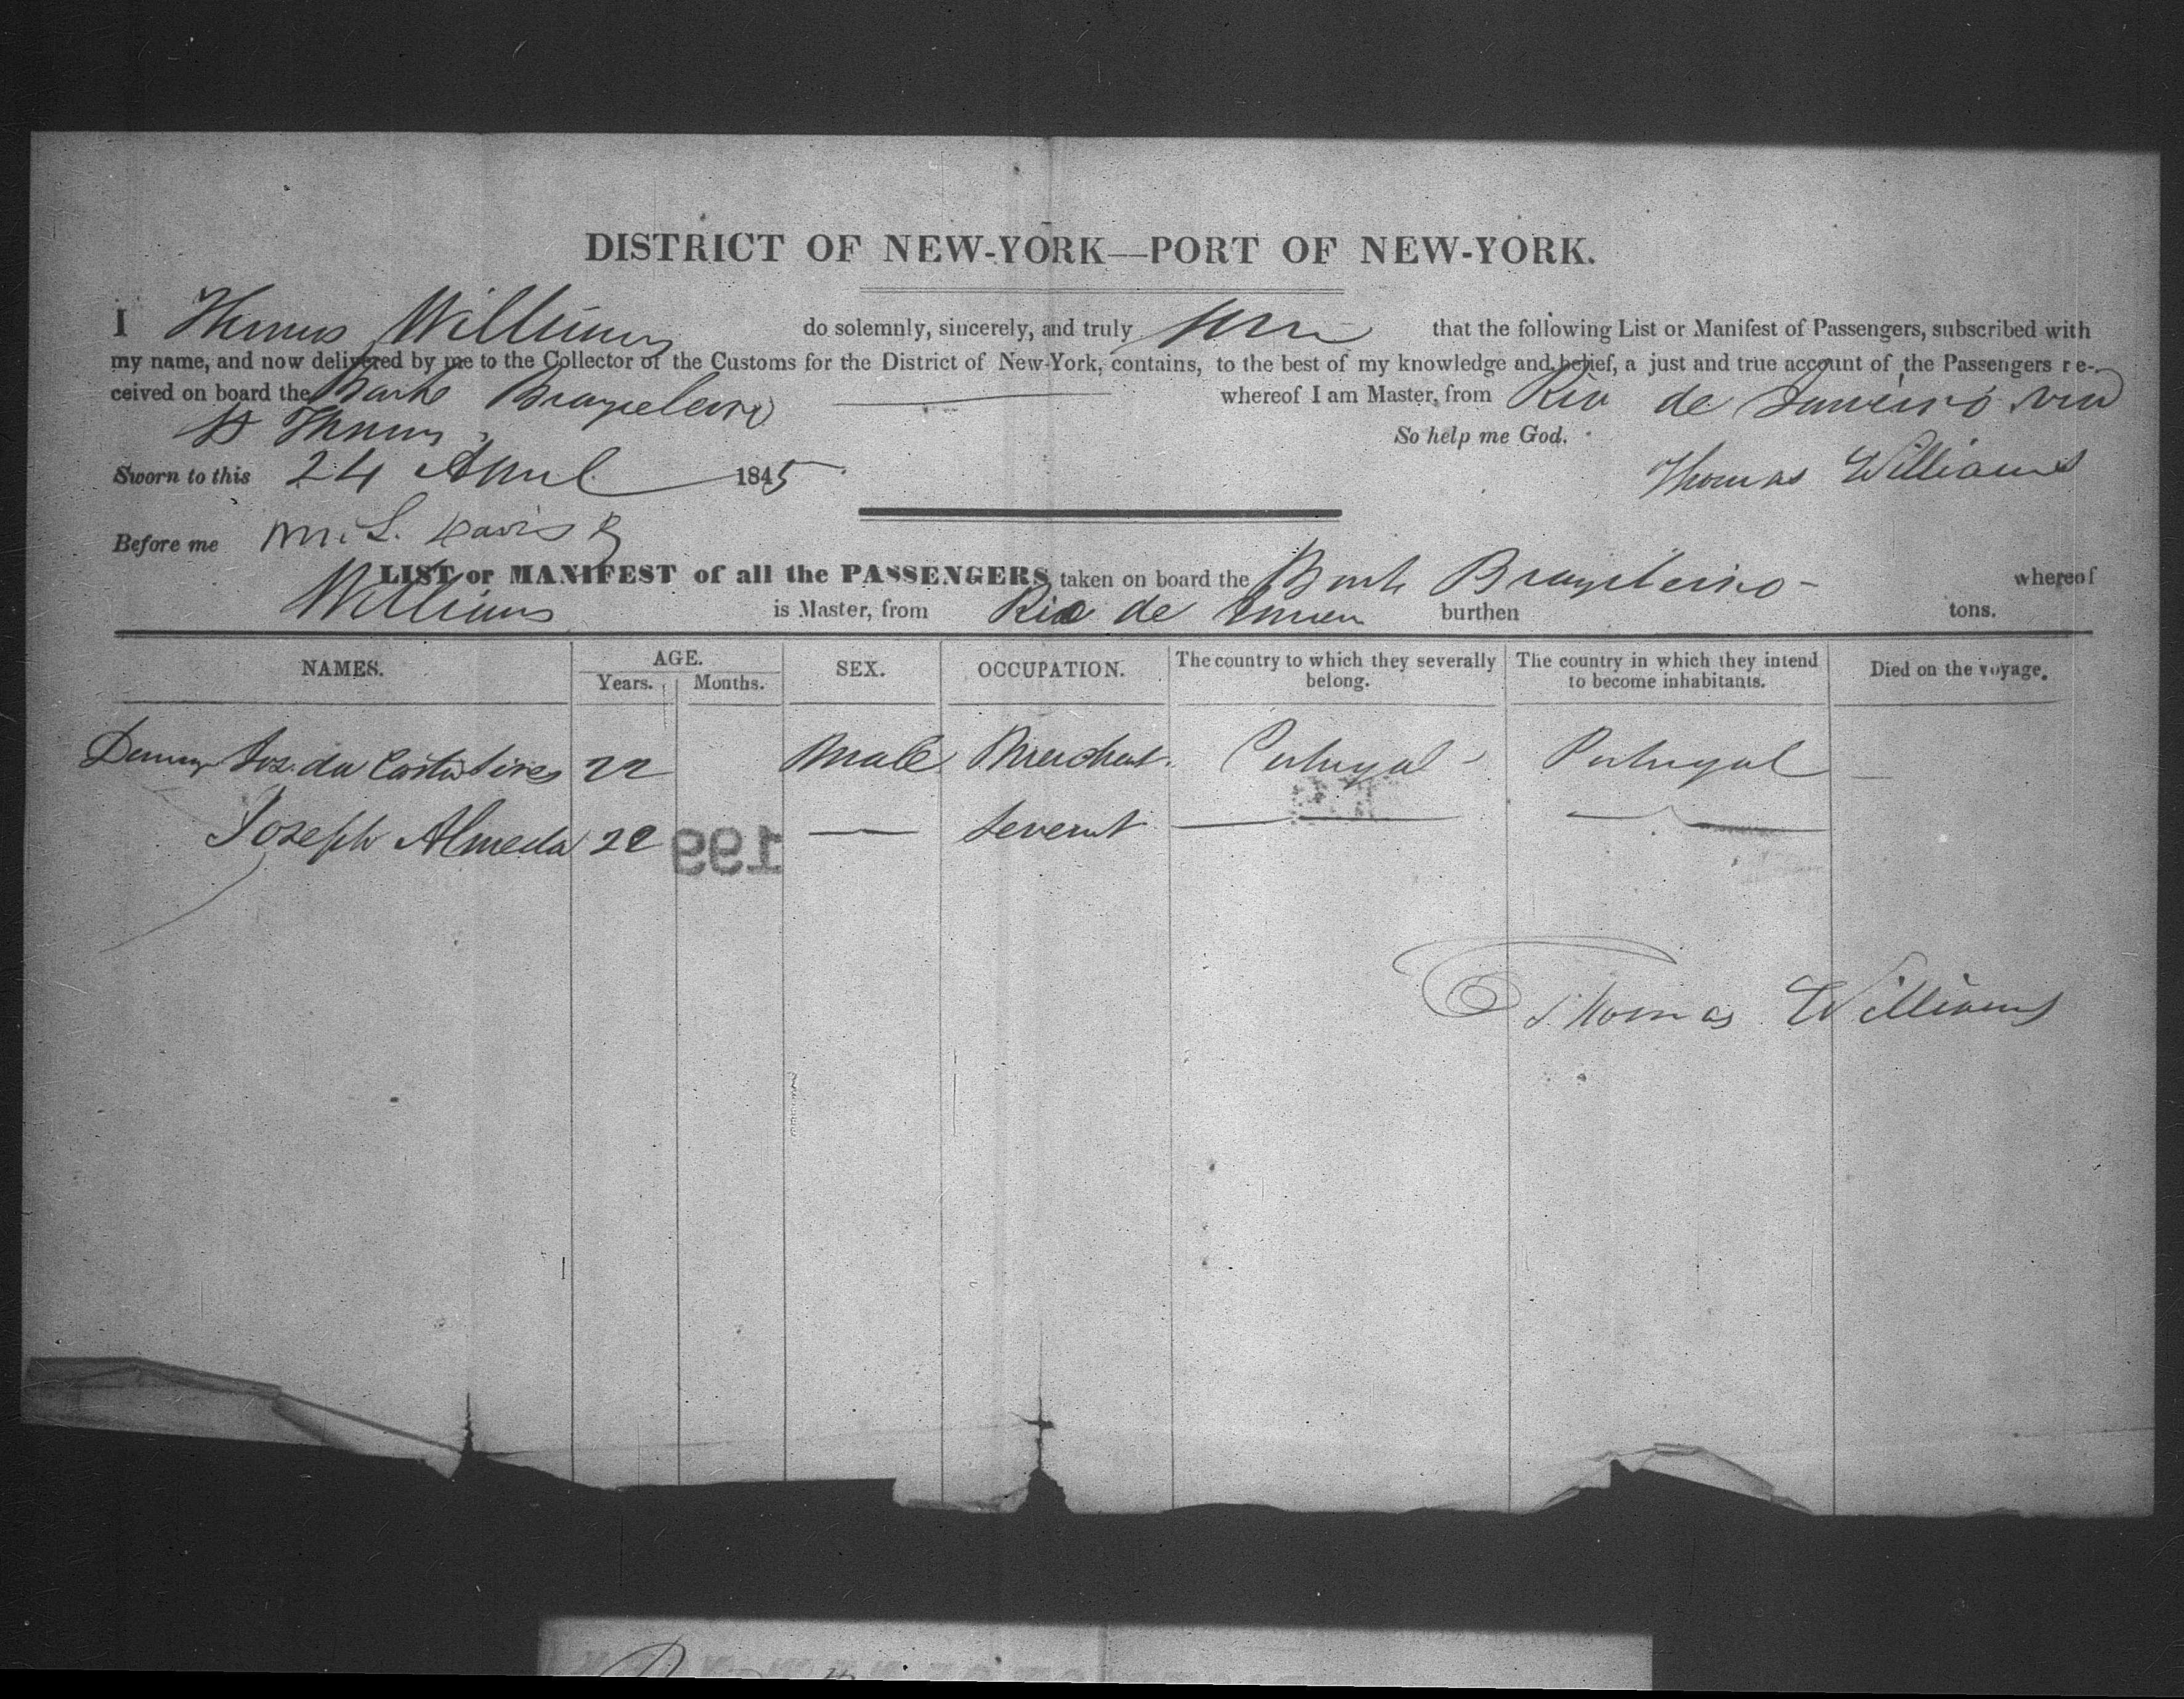 DISTRICT OF NEW-YORK—PORT OF NEW-YORK.
I Thomas Williams do solemnly, sincerely, and truly that the following List or Manifest of Passengers, subscribed with
my name, and now delivered by me to the Collector of the Customs for the District of New-York, contains, to the best of my knowledge and belief, a just and true account of the Passengers re-
ceived on board the Bark Brazileiro whereof I am Master, from Rio de Janeiro via
St Thomas So help me God.
Sworn to this 24 April 1845 Thomas Williams
Before me M. L. Davis
LIST or MANIFEST of all the PASSENGERS taken on board the Bark Brazileiro whereof
Williams is Master, from Rio de Janeiro burthen tons.
NAMES. AGE. SEX. OCCUPATION. The country to which they severally belong. The country in which they intend to become inhabitants. Died on the voyage.
Years. Months.
Jos. da Costa 22 Male Merchant Portugal Portugal —
Joseph Almeda 22 — Servent — —
199
Thomas Williams